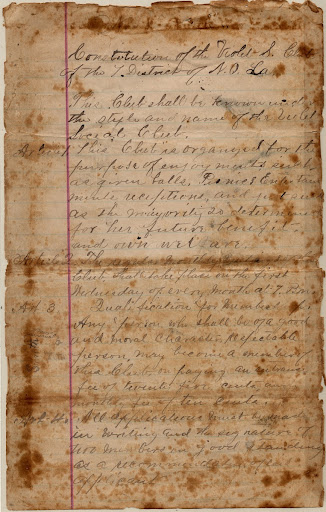 Constitution of the Violet S. Club
of the 7. District of N.O. La
This Club shall be known under
the style and name of the Violet
Social Club.
This Club is organized for the
purpose of enjoyments such
as given balls, Picnics Entertain
ments, receptions, and just such
as the majority so determine
for her future benefit
and own welfare.
Club shall take place on the first
Wednesday of every month at 7
Art 3 Qualification for members
Any person who shall be of a good
and moral character, respectable
person, may become a member of
this Club, in paying an
fee of twenty five cents, and
ten cents.
Art 4. All applications must be made
in writing and the signature of
two members in good standing
as a recommendation of the
applicant